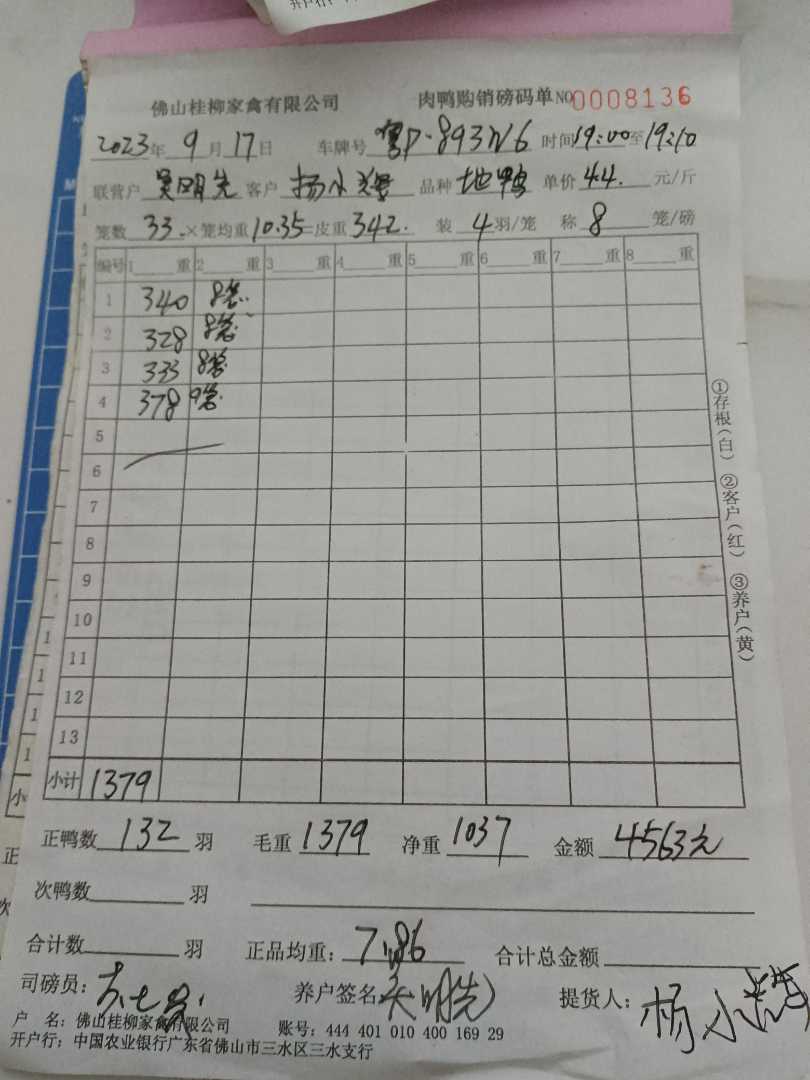 佛山桂柳家禽有限公司 肉鸭购销磅码单 NO 0008136
2023年 9月 17日 车牌号 粤P·893N6 时间19:00至19:10
联营户 吴明先 客户 杨小 品种 地鸭 单价 4.4. 元/斤
笼数 33. ×笼均重 10.35 =皮重 342. 装 4 羽/笼 称 8 笼/磅
编号 1 重 2 重 3 重 4 重 5 重 6 重 7 重 8 重
1 340 8笼
2 328 8笼
3 333 8笼
4 378 9笼
5
6
7
8
9
10
11
12
13
小计 1379
①存根(白) ②客户(红) ③养户(黄)
正鸭数 132 羽 毛重 1379 净重 1037 金额 4563元
次鸭数 羽
合计数 羽 正品均重: 7.86 合计总金额
司磅员: 养户签名 吴明先 提货人: 杨小
户 名: 佛山桂柳家禽有限公司 账号: 444 401 010 400 169 29
开户行: 中国农业银行广东省佛山市三水区三水支行